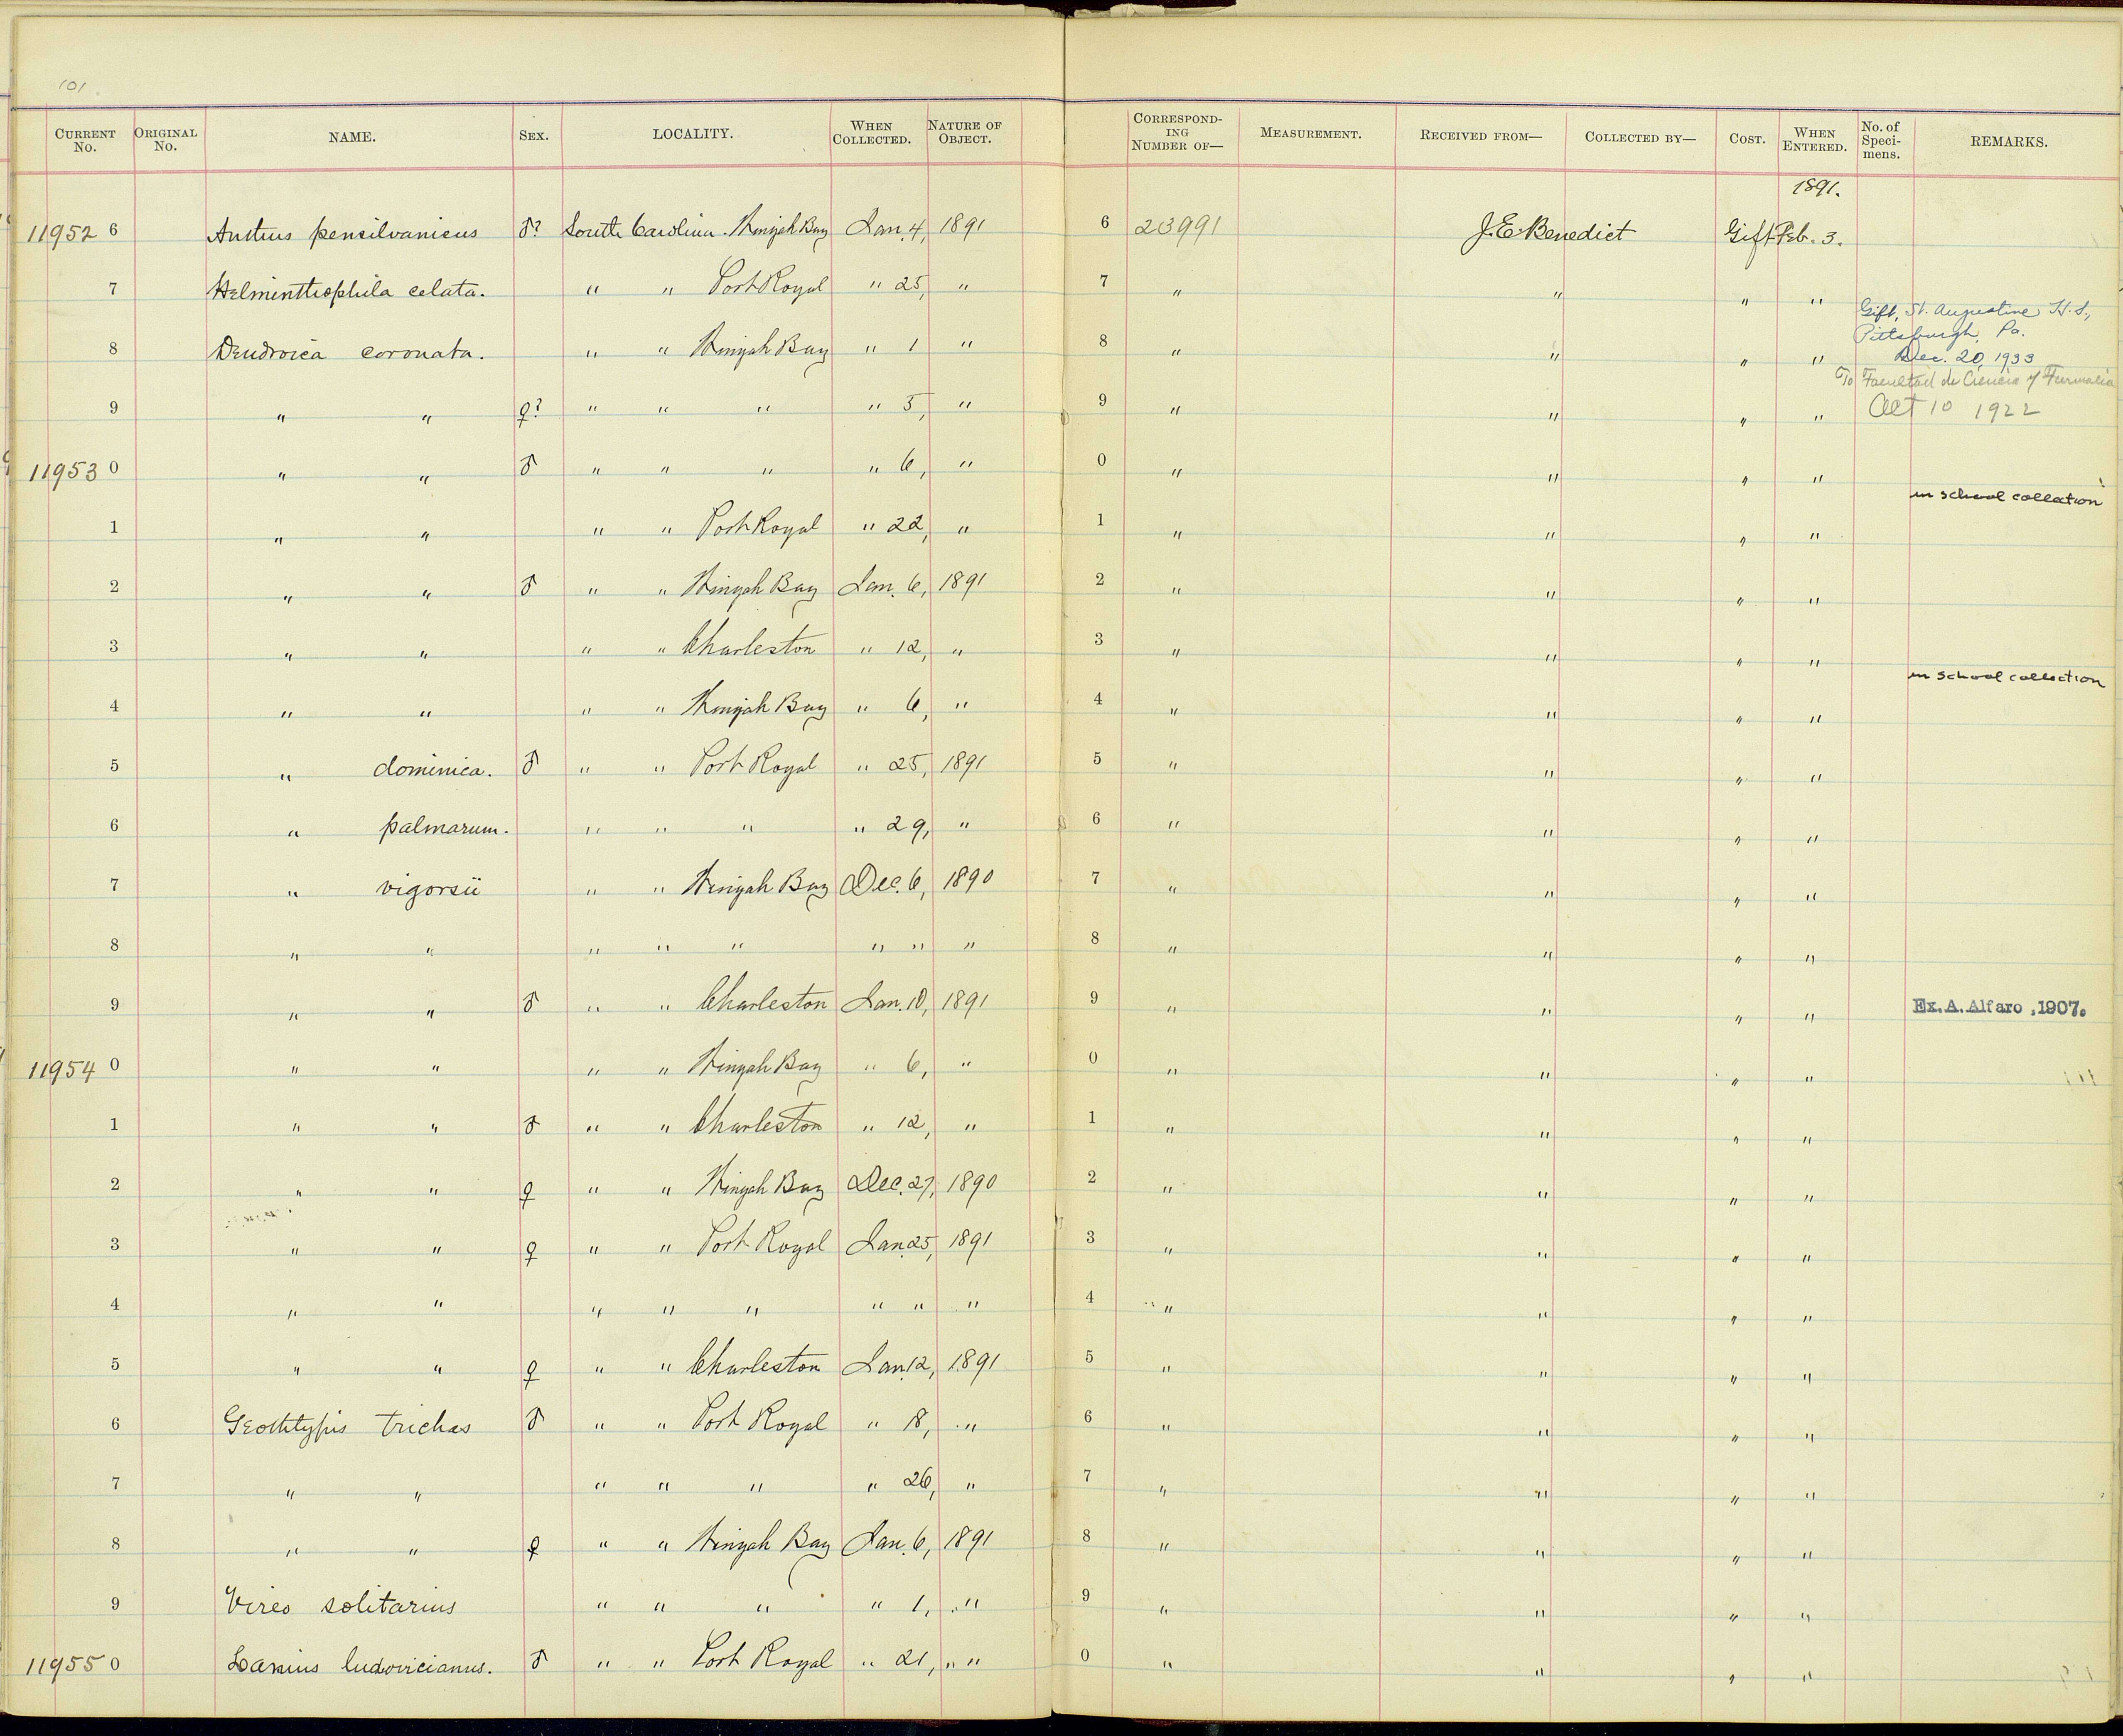 101
CURRENT No. ORIGINAL No. NAME. SEX. LOCALITY. WHEN COLLECTED. NATURE OF OBJECT. CORRESPONDING NUMBER OF— MEASUREMENT. RECEIVED FROM— COLLECTED BY— COST. WHEN ENTERED. No. of Specimens. REMARKS.
1891.
11952 6 Anthus pensilvanicus ♂? South Carolina. Winyah Bay Jan. 4, 1891 6 23991 J. E. Benedict Gift Feb. 3.
7 Helminthophila celata. " " Port Royal " 25, " 7 " " " "
Gift, St. Augustine H.S., Pittsburgh, Pa. Dec. 20, 1933
8 Dendroica coronata. " " Winyah Bay " 1 " 8 " " " "
To Facultad de Ciencia y Farmacia
9 " " ♀? " " " " 5, " 9 " " " " Oct 10 1922
11953 0 " " ♂ " " " " 6, " 0 " " " "
in school collection
1 " " " " Port Royal " 22, " 1 " " " "
2 " " ♂ " " Winyah Bay Jan. 6, 1891 2 " " " "
3 " " " " Charleston " 12, " 3 " " " "
in school collection
4 " " " " Winyah Bay " 6, " 4 " " " "
5 " dominica. ♂ " " Port Royal " 25, 1891 5 " " " "
6 " palmarum. " " " " 29, " 6 " " " "
7 " vigorsii " " Winyah Bay Dec. 6, 1890 7 " " " "
8 " " " " " " " " 8 " " " "
9 " " ♂ " " Charleston Jan. 10, 1891 9 " " " " Ex. A. Alfaro, 1907.
11954 0 " " " " Winyah Bay " 6, " 0 " " " "
1 " " ♂ " " Charleston " 12, " 1 " " " "
2 " " ♀ " " Winyah Bay Dec. 27, 1890 2 " " " "
3 " " ♀ " " Port Royal Jan. 25, 1891 3 " " " "
4 " " " " " " " " 4 " " " "
5 " " ♀ " " Charleston Jan. 12, 1891 5 " " " "
6 Geothlypis trichas ♂ " " Port Royal " 18, " 6 " " " "
7 " " " " " " 26, " 7 " " " "
8 " " ♀ " " Winyah Bay Jan. 6, 1891 8 " " " "
9 Vireo solitarius " " " " 1, " 9 " " " "
11955 0 Lanius ludovicianus. ♂ " " Port Royal " 21, " " 0 " " " "